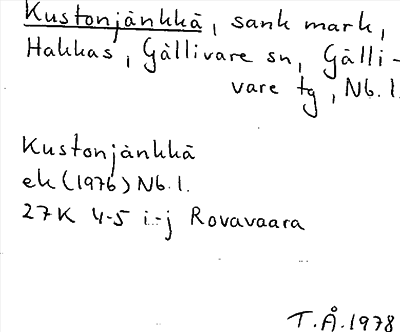 Kustonjänkkä, sank mark,
Hakkas, Gällivare sn, Gälli-
vare tg, Nb. l.
Kustonjänkkä
ek (1976) Nb. l.
27K 4-5 i-j Rovavaara
T.Å. 1978